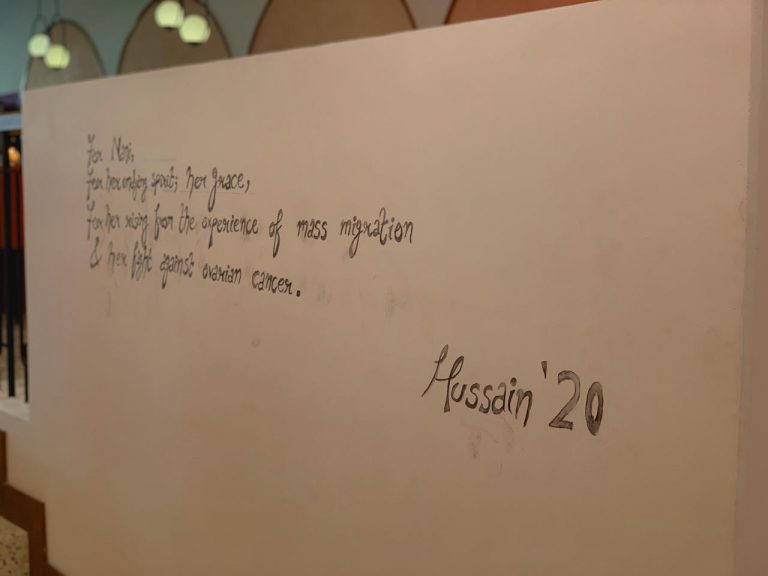 For Nani,
For her undying spirit; her grace,
For her rising from the experience of mass migration
& her fight against ovarian cancer.
Hussain '20